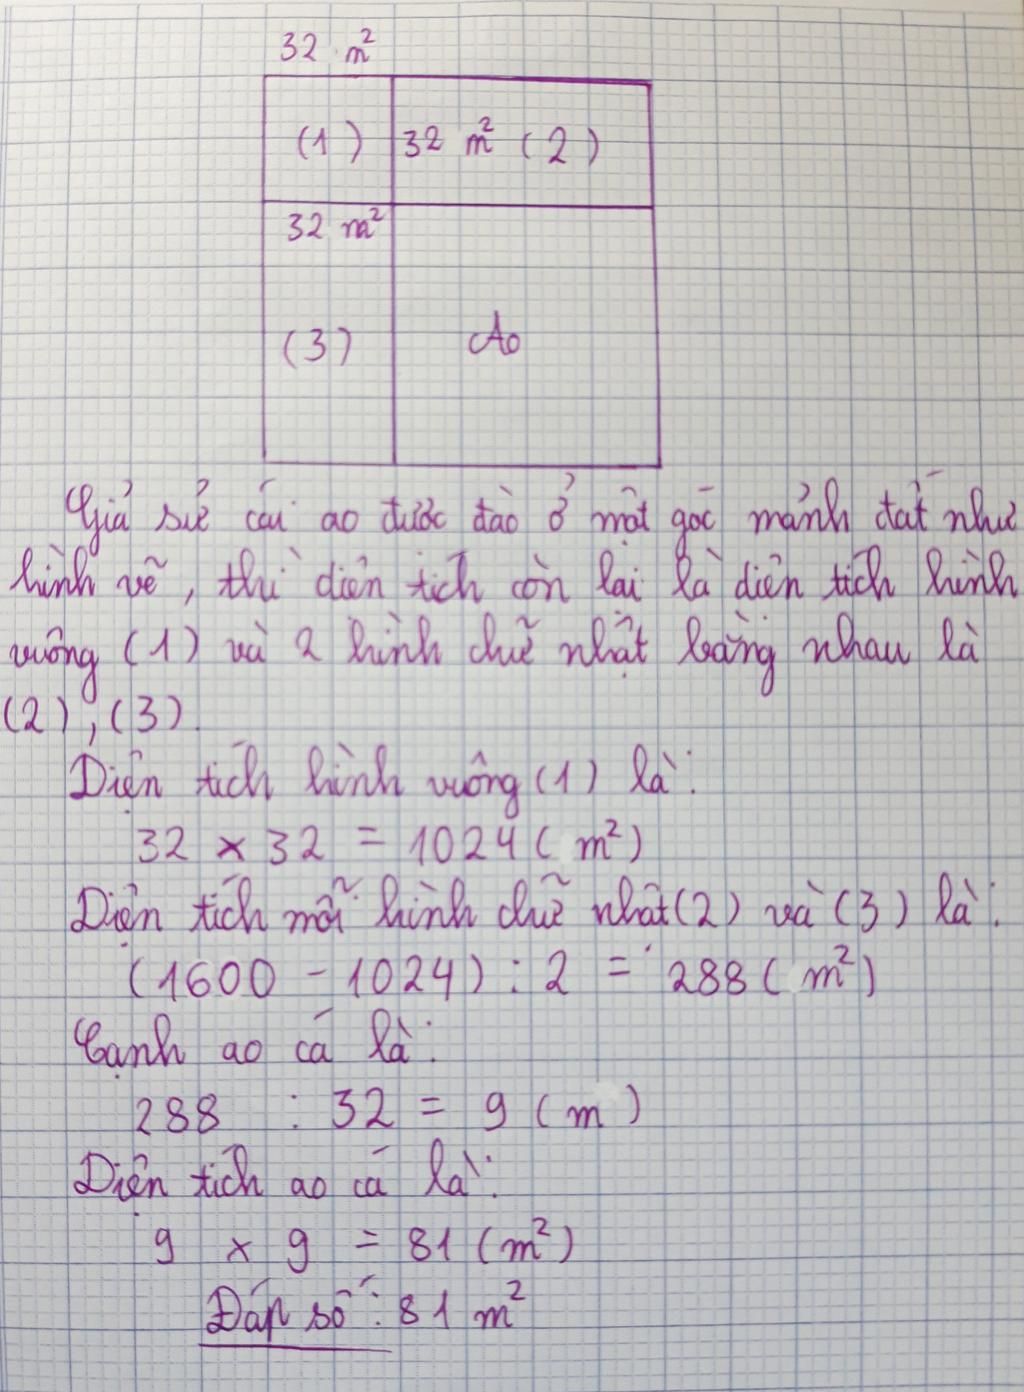 32 m²
(1) 32 m² (2)
32 m²
(3) Ao
Giả sử cái ao được đào ở một góc mảnh đất như
hình vẽ, thì diện tích còn lại là diện tích hình
vuông (1) và 2 hình chữ nhật bằng nhau là
(2), (3).
Diện tích hình vuông (1) là:
32 × 32 = 1024 (m²)
Diện tích mỗi hình chữ nhật (2) và (3) là:
(1600 - 1024) : 2 = 288 (m²)
Cạnh ao cá là:
288 : 32 = 9 (m)
Diện tích ao cá là:
9 × 9 = 81 (m²)
Đáp số: 81 m²